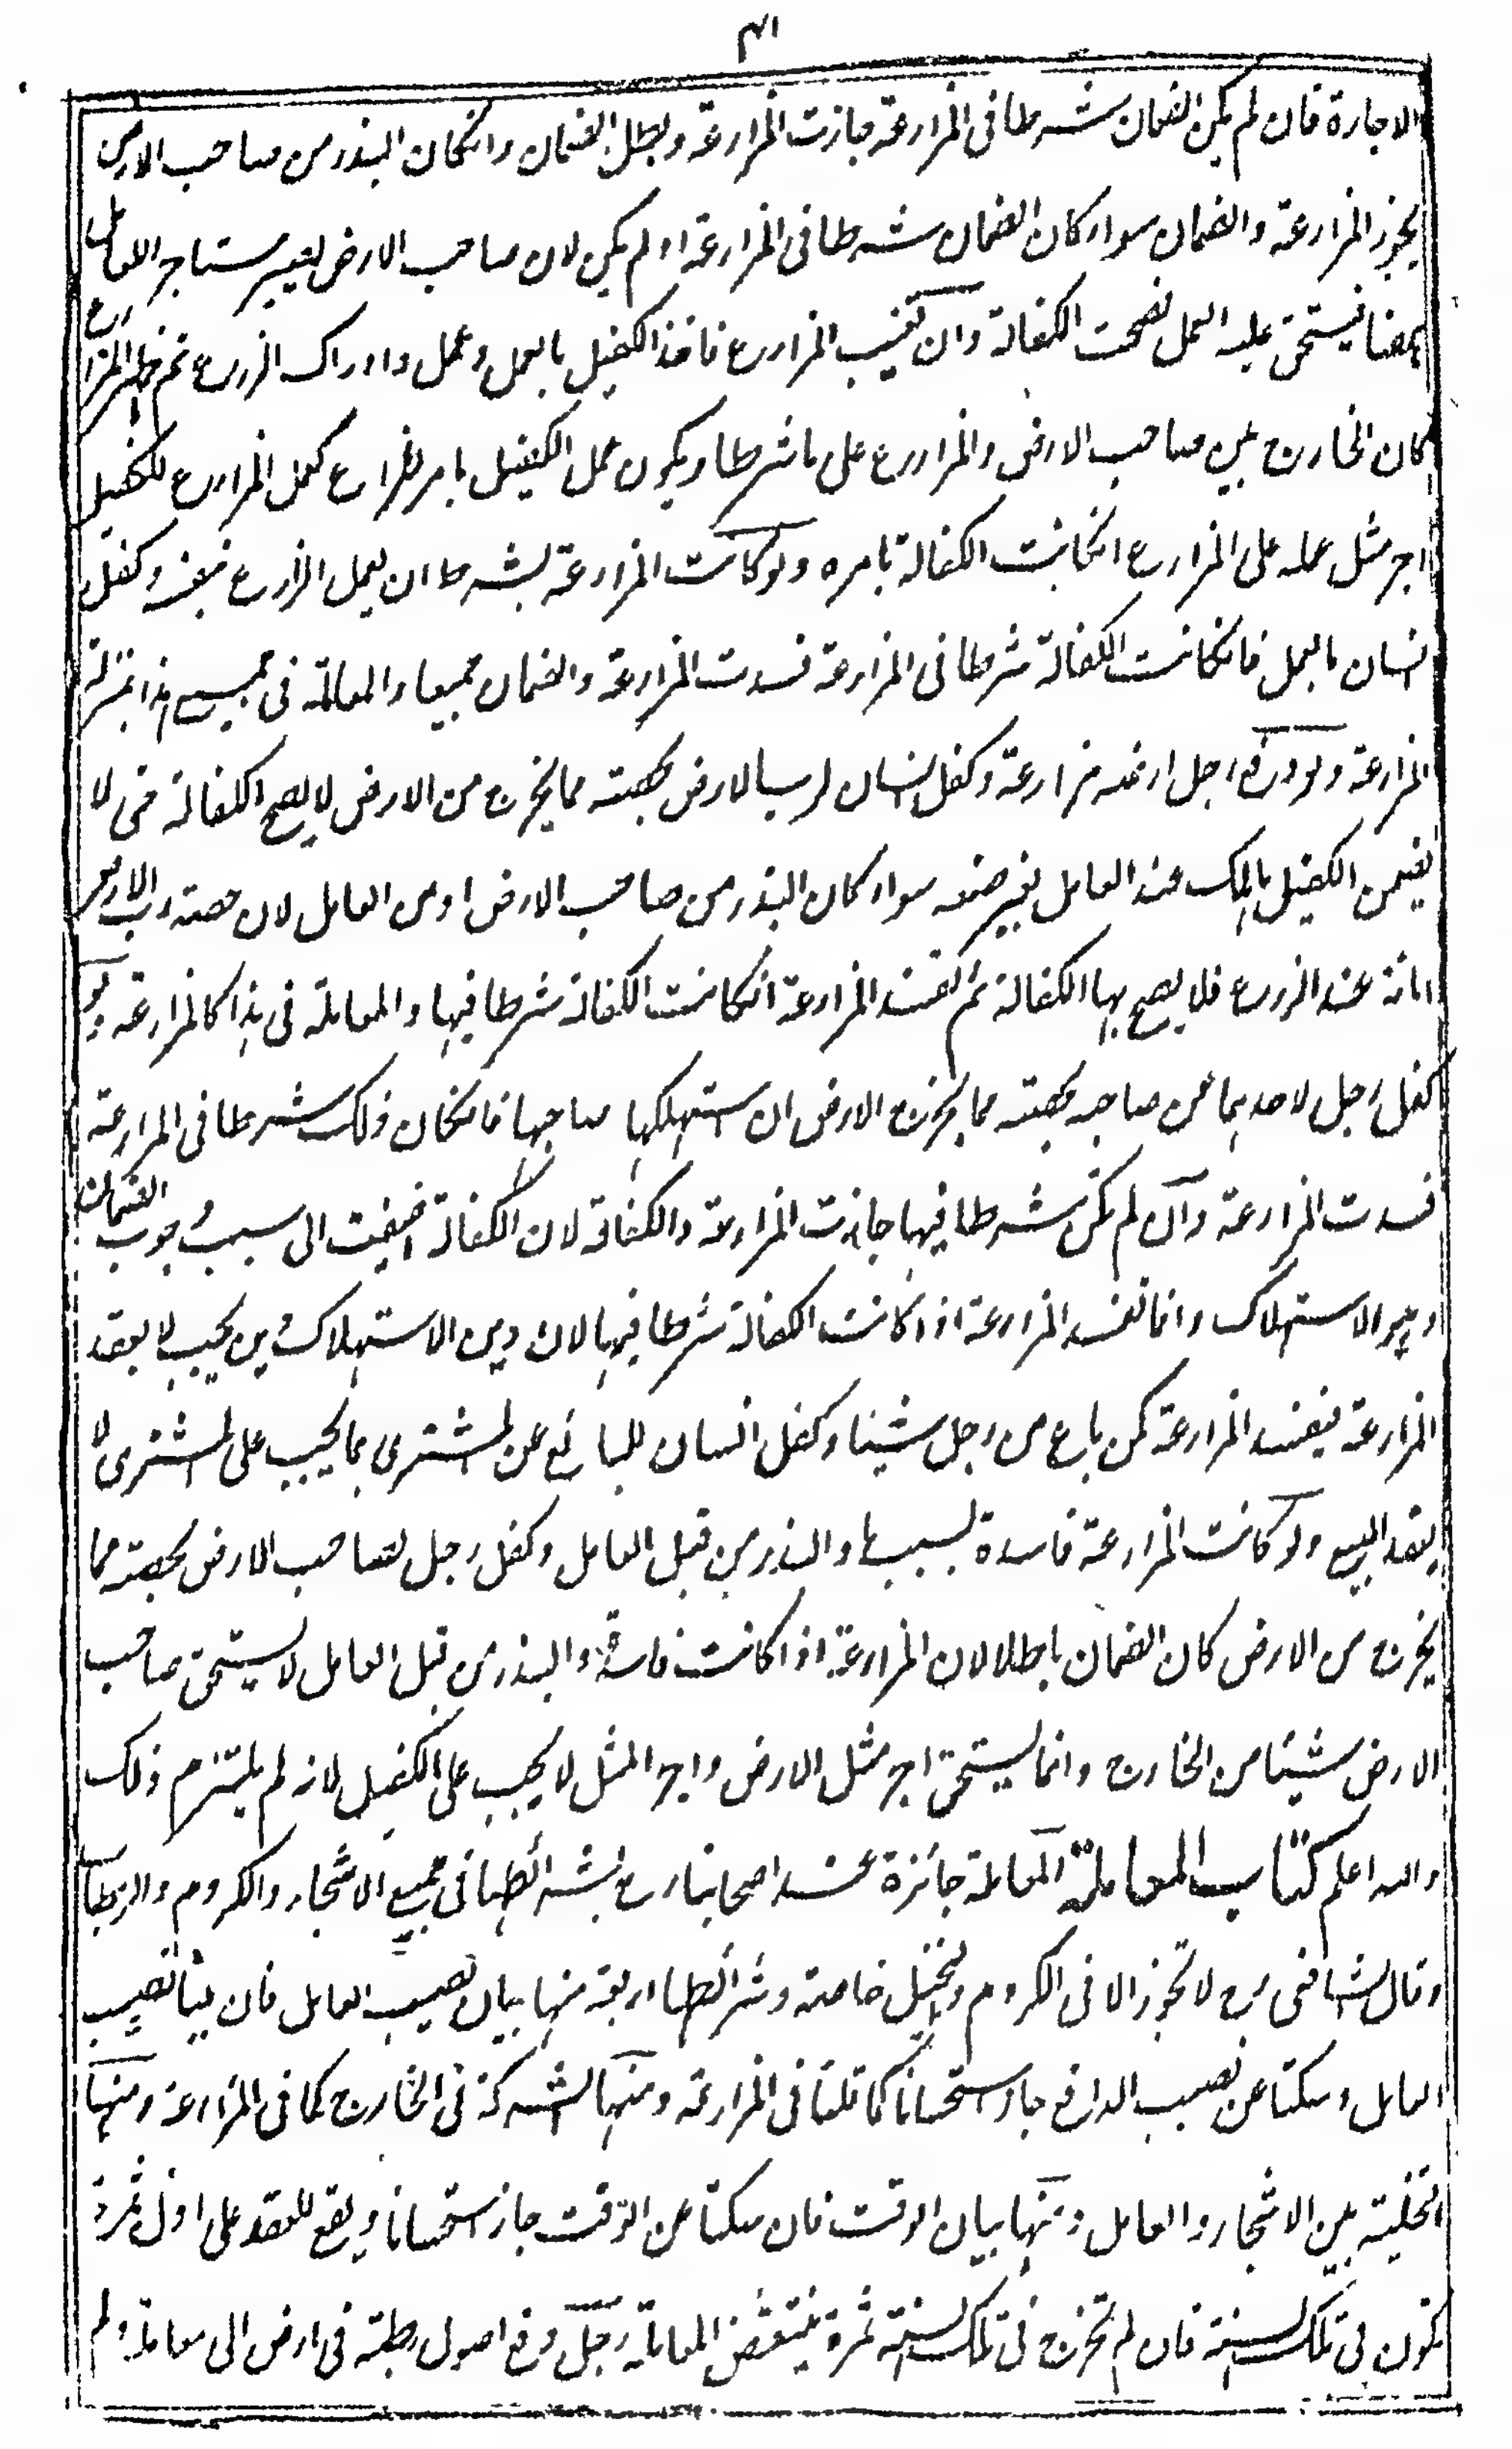 الاجارة فان لم يكن الضمان شرطا فى المزارعة جازت المزارعة وبطل الضمان وانكان البذر من صاحب الارض
يجوز المزارعة والضمان سواء كان الضمان شرطا فى المزارعة او لم يكن لان صاحب الارض يصير مستاجر اللعامل
ههنا فيستحق عليه العمل فصحت الكفالة وان تغيب المزارع فاخذ الكفيل بالعمل وعمل وادراك الزرع ثم ظهر المزارع
كان الخارج بين صاحب الارض والمزارع على ما شرطا ويكون عمل الكفيل بامر المزارع كعمل المزارع للكفيل
اجر مثل عمله على المزارع انكانت الكفالة بامره ولو كانت المزارعة بشرط ان يعمل المزارع بنفسه وكفل
انسان بالعمل فانكانت الكفالة شرطا فى المزارعة فسدت المزارعة والضمان جميعا والمعاملة فى جميع هذا بمنزلة
المزارعة ولو دفع رجل ارضه مزارعة وكفل انسان لرب الارض بحصته مما يخرج من الارض لا يصح الكفالة حتى لا
يضمن الكفيل ما هلك عند العامل بغير صنعه سواء كان البذر من صاحب الارض او من العامل لان حصته رب الارض
امانة عند المزارع فلا يصح بها الكفالة ثم تفسد المزارعة انكانت الكفالة شرطا فيها والمعاملة فى هذا كالمزارعة ولو
كفل رجل لاحدهما عن صاحبه بحصته مما يخرج الارض ان استهلكها صاحبها فانكان ذلك شرطا فى المزارعة
فسدت المزارعة وان لم تكن شرطا فيها جازت المزارعة والكفالة لان الكفالة اضيفت الى سبب وجوب الضمان
وهو الاستهلاك وانما تفسد المزارعة اذا كانت الكفالة شرطا فيها لان دين الاستهلاك دين يجب لا بعقد
المزارعة فيفسد المزارعة كمن باع من رجل شيئا وكفل انسان للبائع عن المشترى بما يجب على المشترى لا
بعقد البيع ولو كانت المزارعة فاسدة بسببها والبذر من قبل العامل وكفل رجل لصاحب الارض بحصته مما
يخرج من الارض كان الضمان باطلا لان المزارعة اذا كانت فاسدة والبذر من قبل العامل لا يستحق صاحب
الارض شيئا من الخارج وانما يستحق اجر مثل الارض واجر المثل لا يجب على الكفيل لانه لم يلتزم ذلك
والله اعلم كتاب المعاملة المعاملة جائزة عند اصحابنا رح بشرائطها فى جميع الاشجار والكروم والرطاب
وقال الشافعى رح لا تجوز الا فى الكروم والنخيل خاصة وشرائطها اربعة منها بيان نصيب العامل فان بينا نصيب
العامل وسكتا عن نصيب الدافع جاز استحسانا كما قلنا فى المزارعة ومنها الشركة فى الخارج كما فى المزارعة ومنها
التخلية بين الاشجار والعامل ومنها بيان الوقت فان سكتا عن الوقت جاز استحسانا ويقع العقد على اول ثمرة
تكون فى تلك السنة فان لم تخرج فى تلك السنة ثمرة ينتقض المعاملة رجل دفع اصول رطبة فى ارض الى معاملة ولم